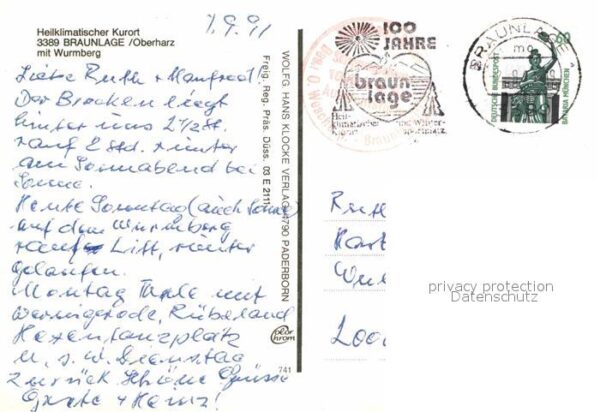 Heilklimatischer Kurort
3389 BRAUNLAGE/Oberharz
mit Wurmberg
1.9.91
Liebe Ruth + Manfred!
Der Brocken liegt
hinter uns 2 1/2 St.
rauf 2 Std. runter
am Sonnabend bei
Sonne.
Heute Sonntag (auch Sonne)
auf dem Wurmberg
rauf Lift, runter
gelaufen.
Montag Thale mit
Wernigerode, Rübeland
Hexentanzplatz
u. s. w. Dienstag
zurück Schöne Grüsse
Grete + Heinz!
WOLFG. HANS KLOCKE VERLAG 4790 PADERBORN
Freig. Reg. Präs. Düss. 03 E 2111
color
chrom
741
100
JAHRE
braun
lage
Heil-
klimatischer und Winter-
Kurort sportplatz
BRAUNLAGE
mo
60
DEUTSCHE BUNDESPOST
BAVARIA MÜNCHEN
Ruth
privacy protection
Datenschutz